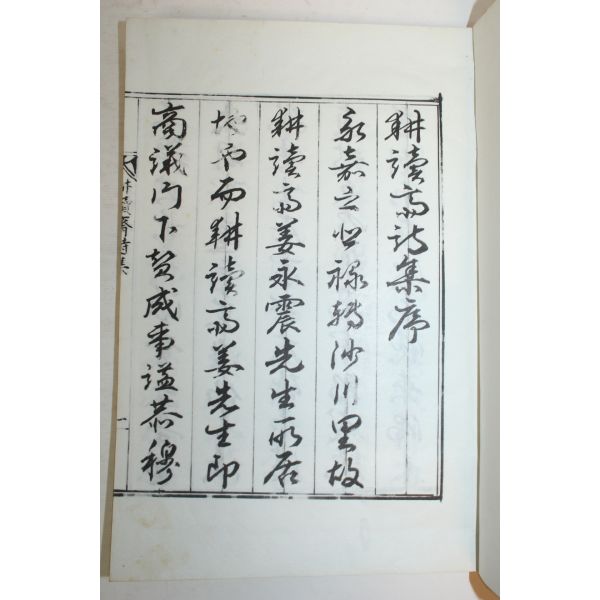 耕讀齋詩集序
永嘉之北祿轉沙川里故
耕讀齋姜永震先生所居
地也而耕讀齋姜先生即
商議門下贊成事諡恭穆
耕讀齋詩集
一